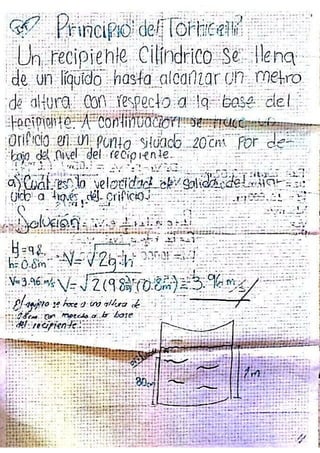 Principio del Torricelli
Un recipiente Cilíndrico se llena
de un líquido hasta alcanzar un metro
de altura con respecto a la base del
recipiente. A continuación se hace un
orificio en un punto situado 20cm por de-
bajo del nivel del recipiente.
a) Cuál es la velocidad de salida del líq-
uido a través del orificio.
Solución
g=9.8
h=0.8m V=√2g·h
V=3.96 m/s V=√2(9.8)(0.8m)=3.96 m/s
El agujero se hace a una altura de
0.8cm con a la base
del recipiente
80cm
1m